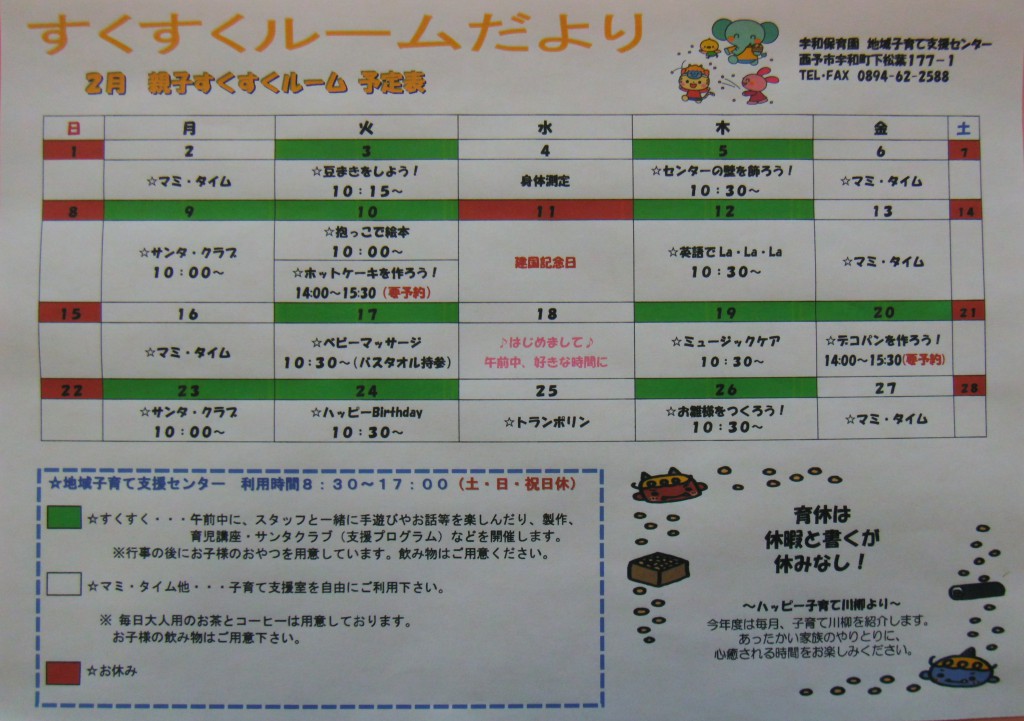 すくすくルームだより
2月 親子すくすくルーム 予定表
宇和保育園 地域子育て支援センター
西予市宇和町下松葉177-1
TEL・FAX 0894-62-2588
日 月 火 水 木 金 土
1 2 3 4 5 6 7
☆マミ・タイム
☆豆まきをしよう!
10:15~
身体測定
☆センターの壁を飾ろう!
10:30~
☆マミ・タイム
8 9 10 11 12 13 14
☆サンタ・クラブ
10:00~
☆抱っこで絵本
10:00~
☆ホットケーキを作ろう!
14:00~15:30(要予約)
建国記念日
☆英語でLa・La・La
10:30~
☆マミ・タイム
15 16 17 18 19 20 21
☆マミ・タイム
☆ベビーマッサージ
10:30~(バスタオル持参)
♪はじめまして♪
午前中、好きな時間に
☆ミュージックケア
10:30~
☆デコパンを作ろう!
14:00~15:30(要予約)
22 23 24 25 26 27 28
☆サンタ・クラブ
10:00~
☆ハッピーBirthday
10:30~
☆トランポリン
☆お雛様をつくろう!
10:30~
☆マミ・タイム
☆地域子育て支援センター 利用時間8:30~17:00(土・日・祝日休)
☆すくすく・・・午前中に、スタッフと一緒に手遊びやお話等を楽しんだり、製作、
育児講座・サンタクラブ(支援プログラム)などを開催します。
※行事の後にお子様のおやつを用意しています。飲み物はご用意ください。
☆マミ・タイム他・・・子育て支援室を自由にご利用下さい。
※ 毎日大人用のお茶とコーヒーは用意しております。
お子様の飲み物はご用意下さい。
☆お休み
育休は
休暇と書くが
休みなし!
~ハッピー子育て川柳より~
今年度は毎月、子育て川柳を紹介します。
あったかい家族のやりとりに、
心癒される時間をお楽しみください。